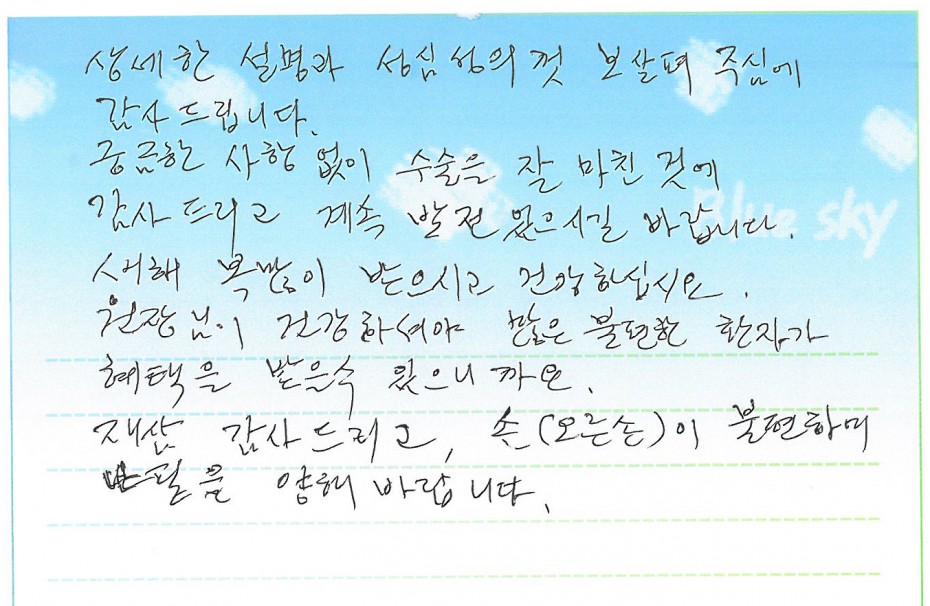 상세한 설명과 성심성의껏 보살펴 주심에
감사드립니다.
궁금한 사항 없이 수술을 잘 마친 것에
감사드리고 계속 발전 있으시길 바랍니다.
Blue sky
새해 복많이 받으시고 건강하십시요.
원장님이 건강하셔야 많은 불편한 환자가
혜택을 받을수 있으니까요.
재삼 감사드리고, 손(오른손)이 불편하여
난필을 양해 바랍니다.